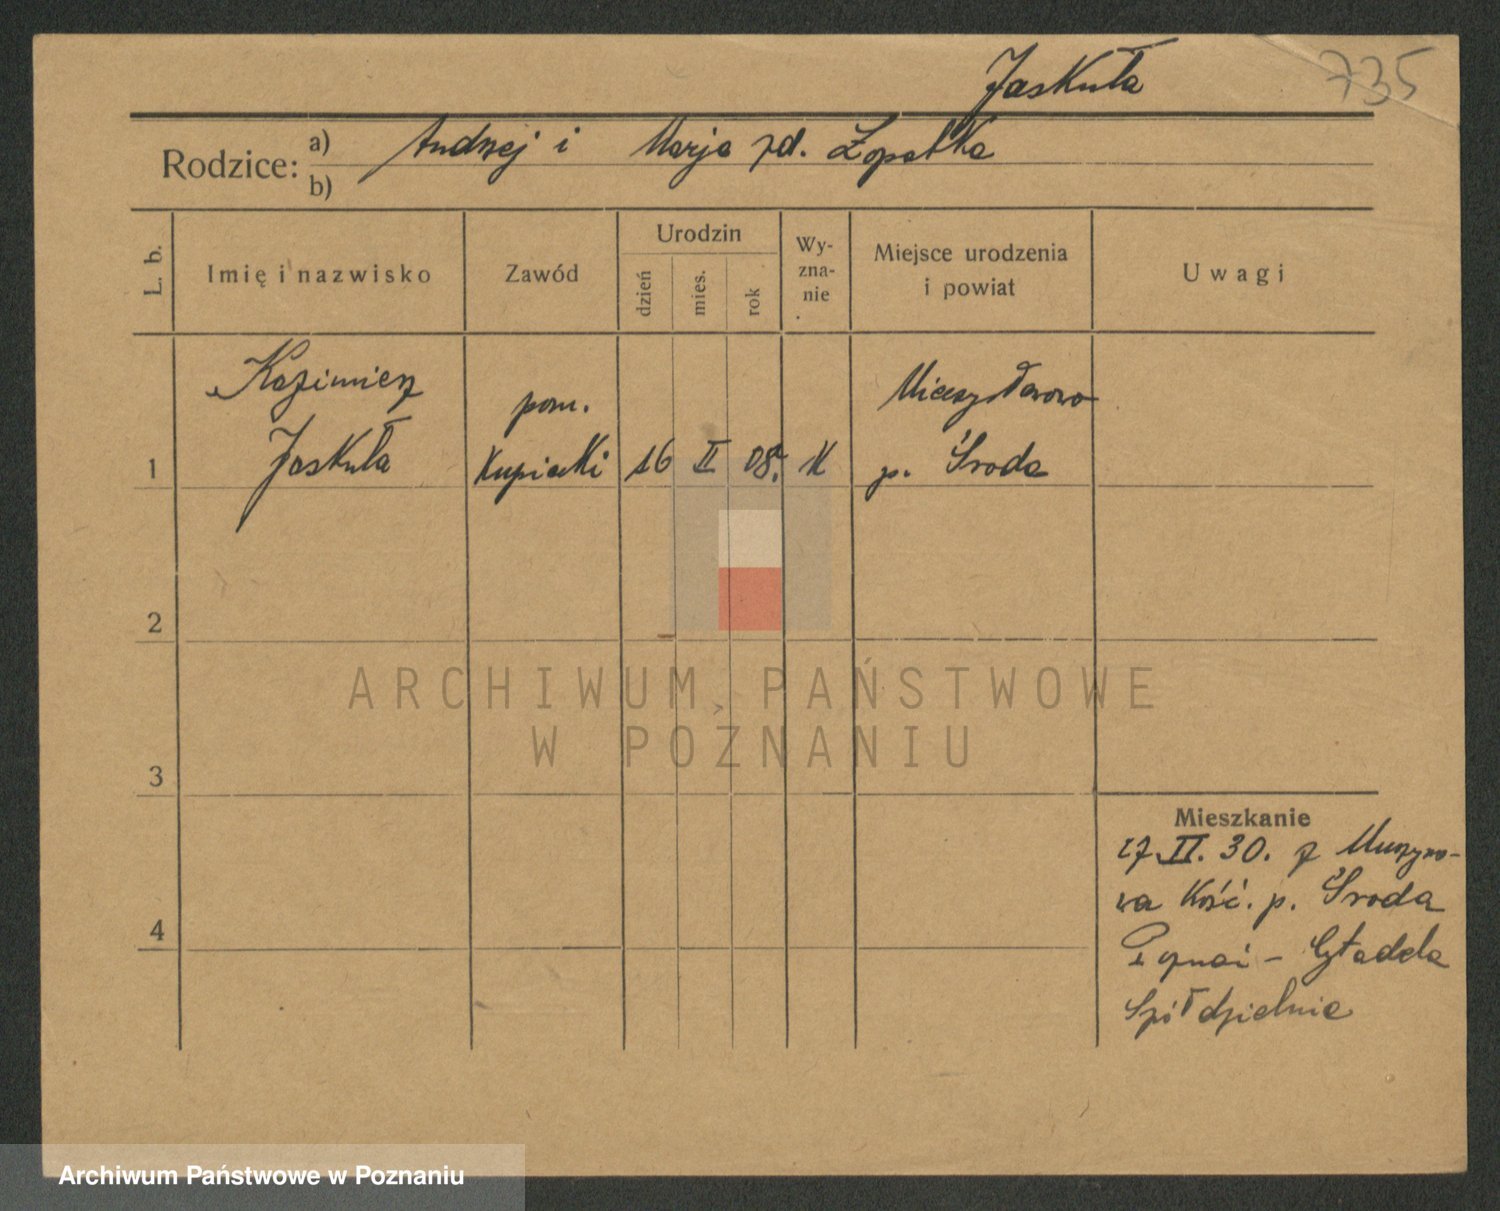 Jaskuła 735
Rodzice: a) Andrzej i Marja zd. Łopatka
b)
L. b. Imię i nazwisko Zawód Urodzin dzień mies. rok Wyznanie Miejsce urodzenia i powiat Uwagi
Kazimierz pom. Mieczysławowo
1 Jaskuła kupiecki 16 II 08. K p. Środa
2
3
4
Mieszkanie
27.II.30. z Murzyno-
wa Kość. p. Środa
Poznań - Cytadela
Spółdzielnia
ARCHIWUM PAŃSTWOWE
W POZNANIU
Archiwum Państwowe w Poznaniu